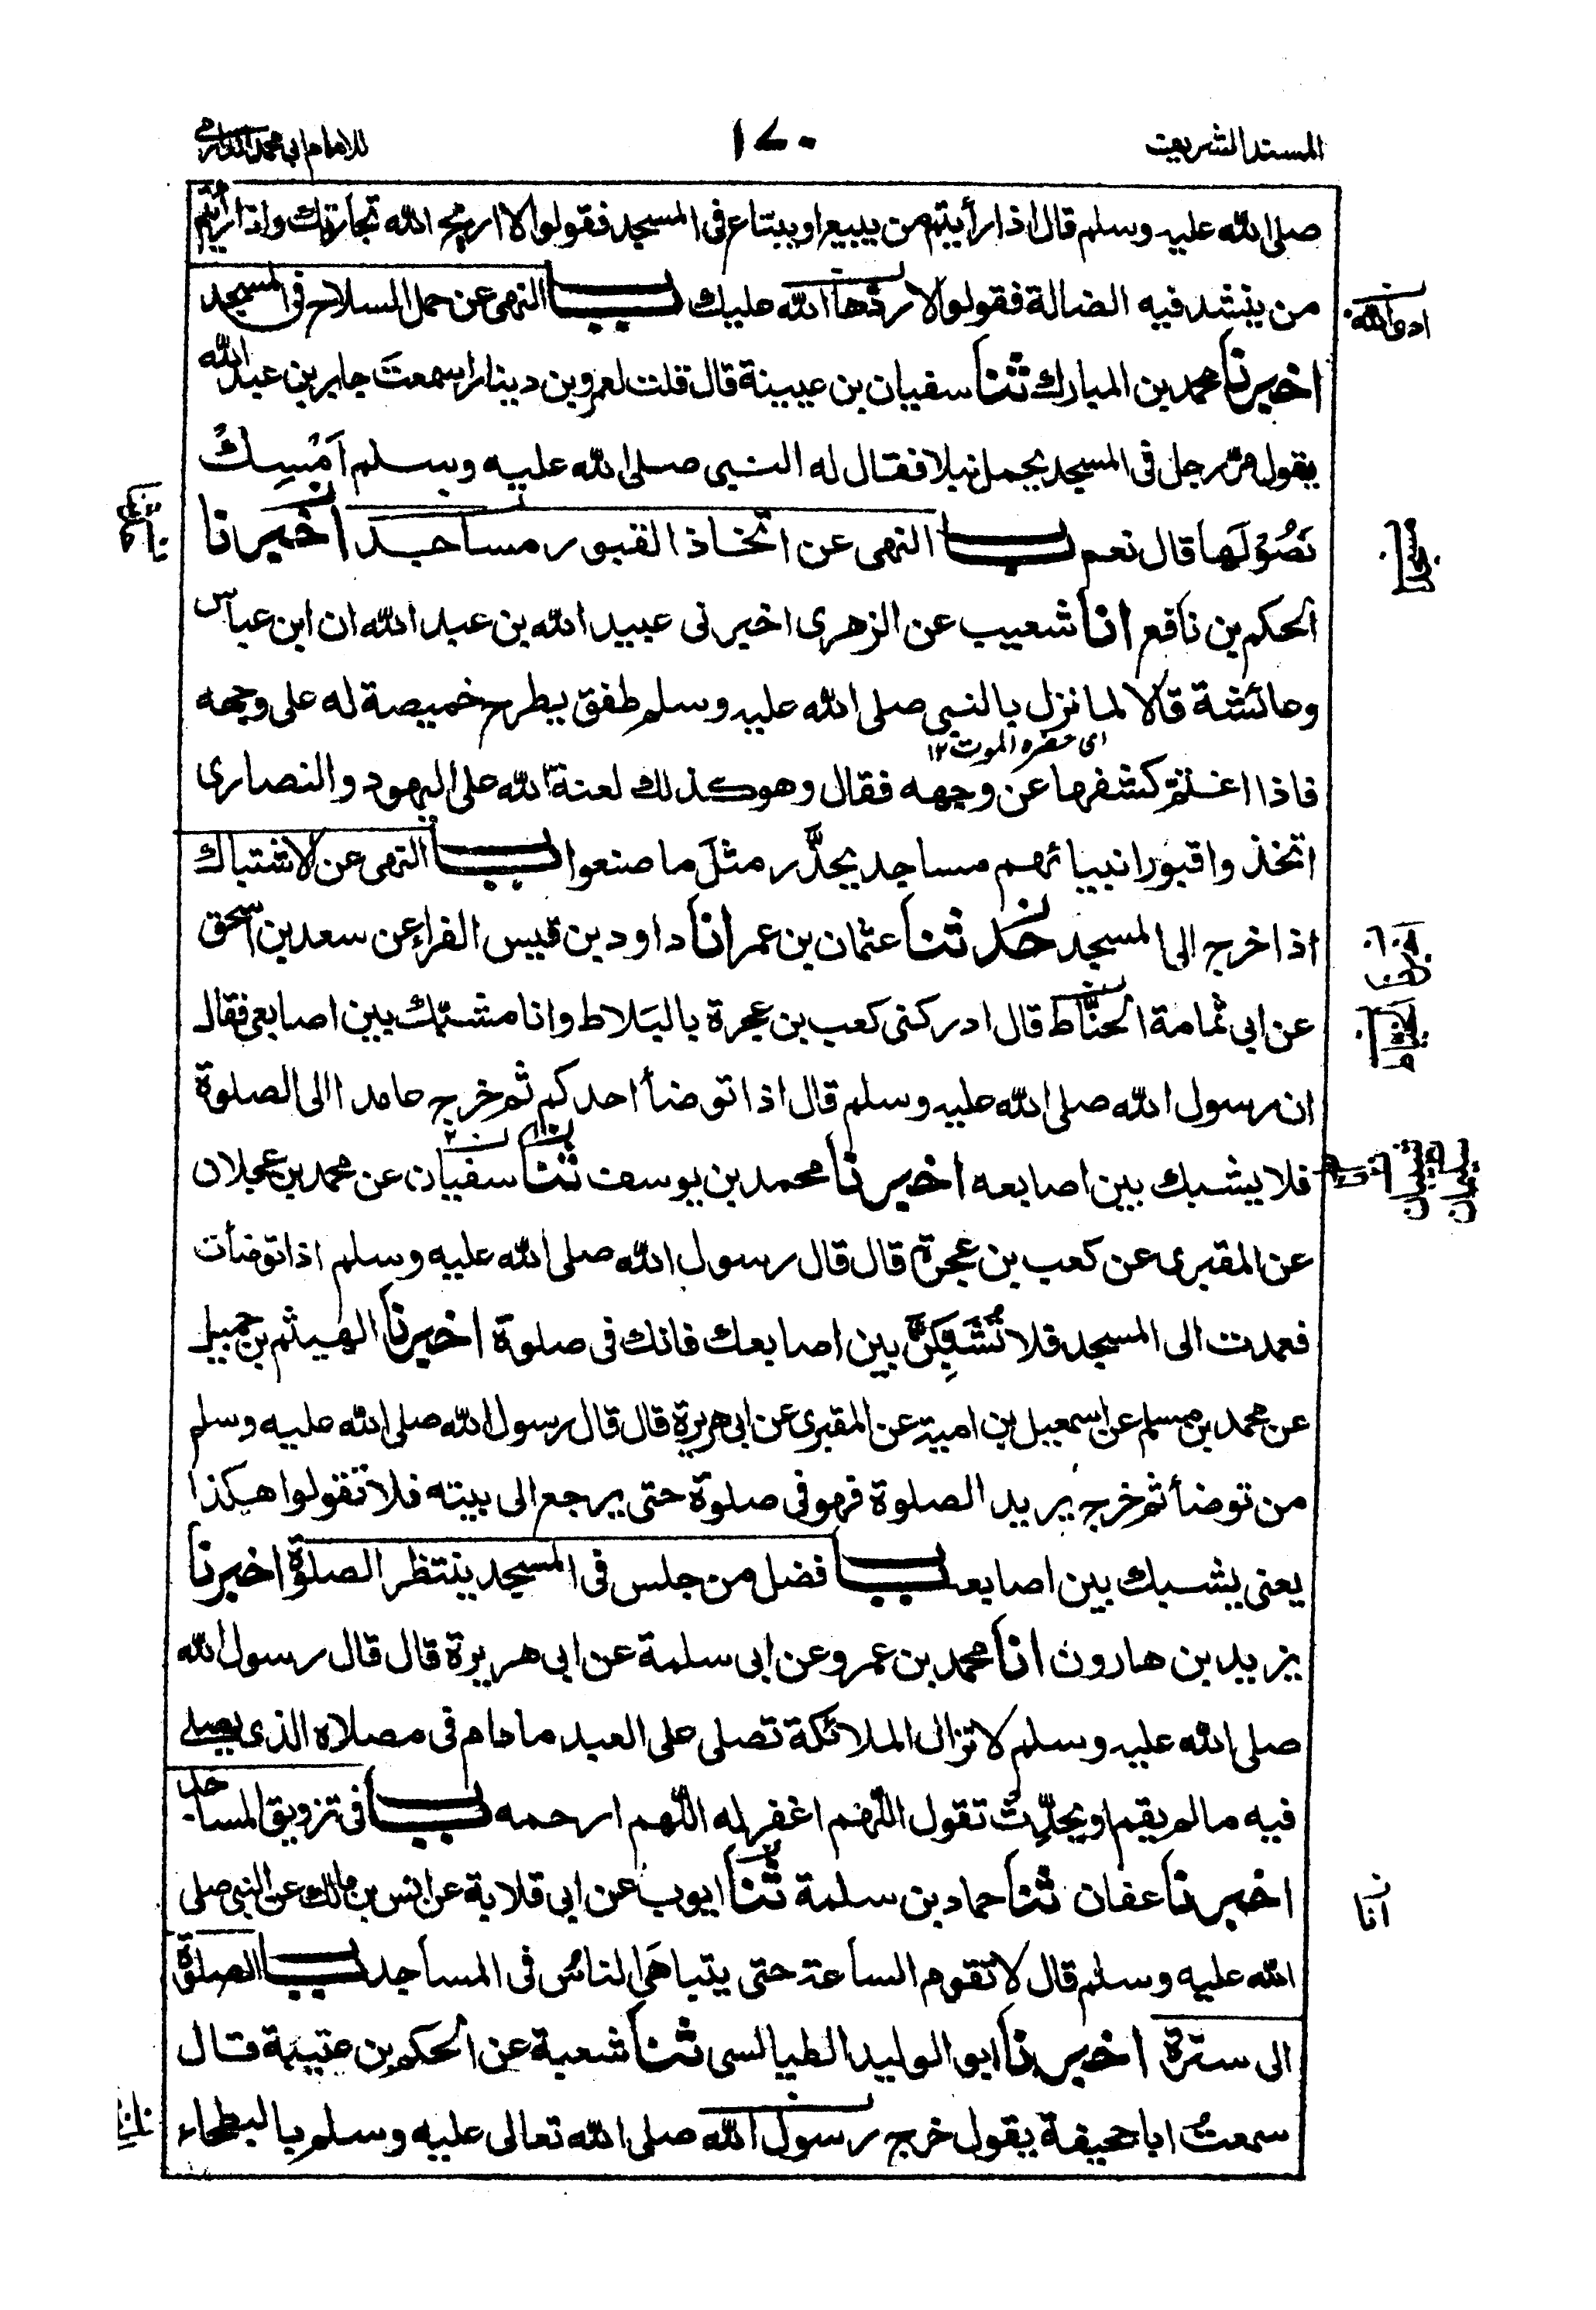 المسند الشريف
١٧٠
للامام ابي محمد الدارمي
صلى الله عليه وسلم قال اذا رأيتم من يبيع او يبتاع فى المسجد فقولوا لا اربح الله تجارتك واذا رأيتم
من ينشد فيه الضالة فقولوا لا ردّها الله عليك بـــاب النهى عن حمل السلاح فى المسجد
اخبرنا محمد بن المبارك ثنا سفيان بن عيينة قال قلت لعمرو بن دينار اسمعتَ جابر بن عبد الله
يقول مرّ رجل فى المسجد يحمل نبلا فقال له النبي صلى الله عليه وسلم اَمْسِكْ
نَصُوْلَها قال نعم بـــاب النهى عن اتخاذ القبور مساجد اخبرنا
الحكم بن نافع انا شعيب عن الزهرى اخبرنى عبيد الله بن عبد الله ان ابن عباس
وعائشة قالا لما نزل بالنبي صلى الله عليه وسلم طفق يطرح خميصة له على وجهه
اى حضره الموت ١٢
فاذا اغتمّ كشفها عن وجهه فقال وهو كذلك لعنة الله على اليهود والنصارى
اتخذوا قبور انبيائهم مساجد يحذّر مثلَ ما صنعوا بـــاب النهى عن الاشتباك
اذا خرج الى المسجد حدثنا عثمان بن عمر انا داود بن قيس الفراء عن سعد بن اسحق
عن ابي ثمامة الحنّاط قال ادركنى كعب بن عجرة بالبَلاط وانا مشبّك بين اصابعى فقال
ان رسول الله صلى الله عليه وسلم قال اذا توضأ احدكم ثم خرج عامدا الى الصلوة
فلا يشبك بين اصابعه اخبرنا محمد بن يوسف ثنا سفيان عن محمد بن عجلان
عن المقبرى عن كعب بن عجرة قال قال رسول الله صلى الله عليه وسلم اذا توضأت
فعمدت الى المسجد فلا تُشَبِّكَنَّ بين اصابعك فانك فى صلوة اخبرنا الهيثم بن جميل
عن محمد بن مسلم عن اسمعيل بن امية عن المقبرى عن ابي هريرة قال قال رسول الله صلى الله عليه وسلم
من توضأ ثم خرج يريد الصلوة فهو فى صلوة حتى يرجع الى بيته فلا تقولوا هكذا
يعنى يشبك بين اصابعه بـــاب فضل من جلس فى المسجد ينتظر الصلوة اخبرنا
يزيد بن هارون انا محمد بن عمرو عن ابى سلمة عن ابى هريرة قال قال رسول الله
صلى الله عليه وسلم لا تزال الملائكة تصلى على العبد ما دام فى مصلاه الذى يصلى
فيه ما لم يقم او يحدّث تقول اللّهم اغفر له اللّهم ارحمه بـــاب فى تزويق المساجد
اخبرنا عفان ثنا حماد بن سلمة ثنا ايوب عن ابى قلابة عن انس بن مالك عن النبى صلى
انا
الله عليه وسلم قال لا تقوم الساعة حتى يتباهَى الناسُ فى المساجد بـــاب الصلوة
الى سترة اخبرنا ابو الوليد الطيالسى ثنا شعبة عن الحكم بن عتيبة قال
سمعتُ ابا جحيفة يقول خرج رسول الله صلى الله تعالى عليه وسلم بالبطحاء